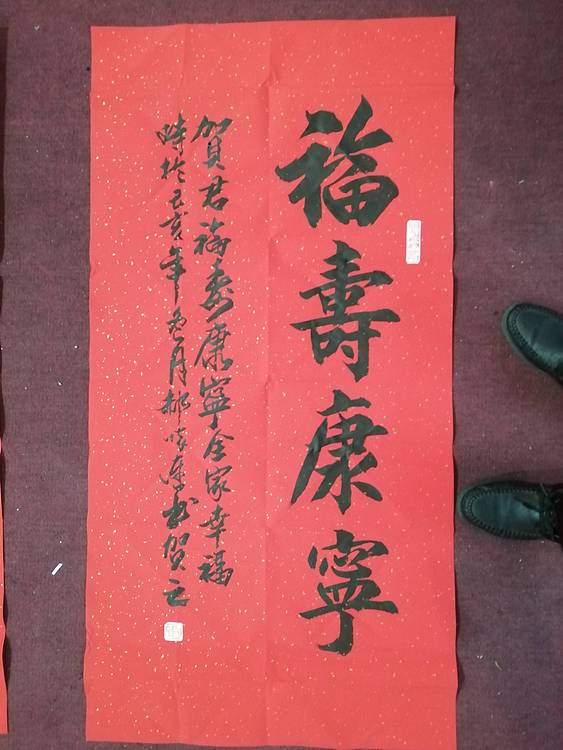 福壽康寧
賀君福壽康寧全家幸福
時於己亥年 月郝 書賀之